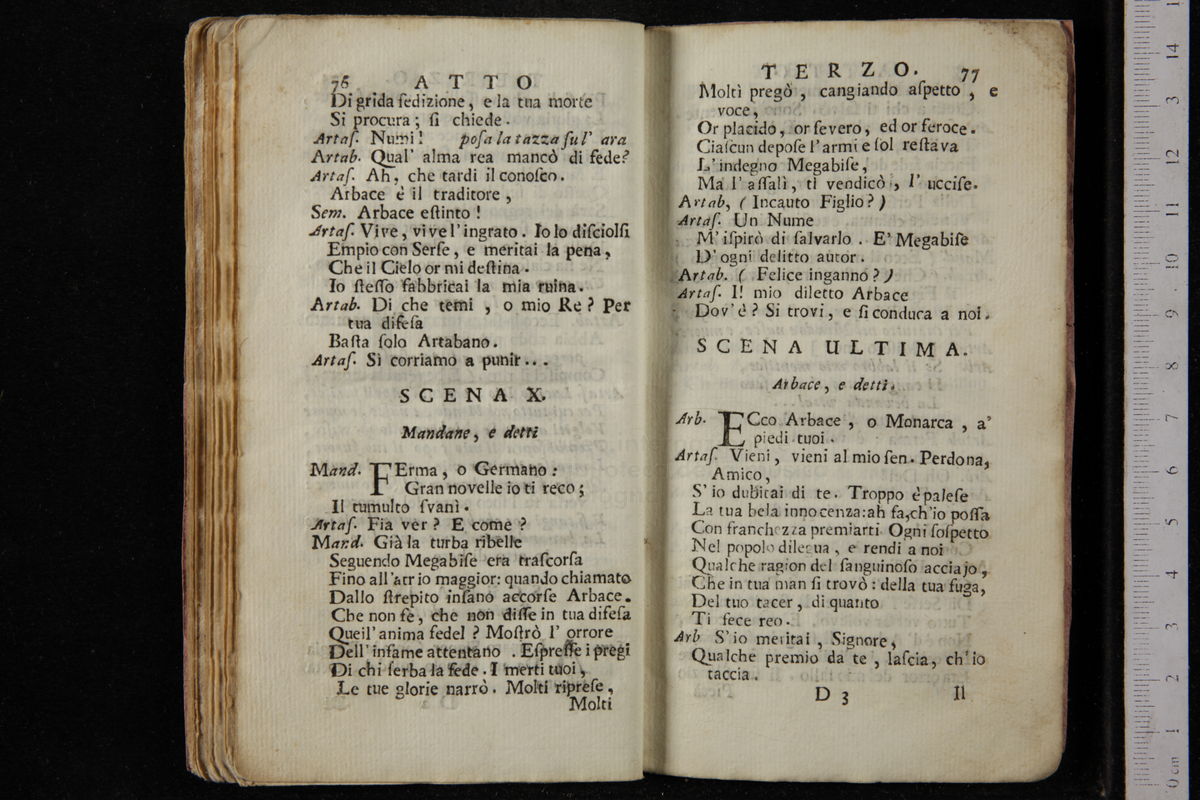 76 ATTO
Di grida ſedizione, e la tua morte
Si procura; ſi chiede.
Artaſ. Numi! poſa la tazza ſul' ara
Artab. Qual' alma rea mancò di fede?
Artaſ. Ah, che tardi il conoſco.
Arbace è il traditore,
Sem. Arbace eſtinto!
Artaſ. Vive, vive l'ingrato. Io lo diſciolſi
Empio con Serſe, e meritai la pena,
Che il Cielo or mi deſtina.
Io ſteſſo fabbricai la mia ruina.
Artab. Di che temi, o mio Re? Per
tua difeſa
Baſta ſolo Artabano.
Artaſ. Sì corriamo a punir...
SCENA X.
Mandane, e detti
Mand. FErma, o Germano:
Gran novelle io ti reco;
Il tumulto ſvanì.
Artaſ. Fia ver? E come?
Mand. Già la turba ribelle
Seguendo Megabiſe era traſcorſa
Fino all'atrio maggior: quando chiamato
Dallo ſtrepito inſano accorſe Arbace.
Che non fè, che non diſſe in tua difeſa
Queil'anima fedel? Moſtrò l' orrore
Dell' infame attentato. Eſpreſſe i pregi
Di chi ſerba la fede. I merti tuoi,
Le tue glorie narrò. Molti ripreſe,
Molti
TERZO. 77
Molti pregò, cangiando aſpetto, e
voce,
Or placido, or ſevero, ed or feroce.
Ciaſcun depoſe l'armi e ſol reſtava
L'indegno Megabiſe,
Ma l'aſſalì, ti vendicò, l' ucciſe.
Artab, (Incauto Figlio?)
Artaſ. Un Nume
M'iſpirò di ſalvarlo. E' Megabiſe
D'ogni delitto autor.
Artab. (Felice inganno?)
Artaſ. Il mio diletto Arbace
Dov'è? Si trovi, e ſi conduca a noi.
SCENA ULTIMA.
Arbace, e detti.
Arb. ECco Arbace, o Monarca, a'
piedi tuoi.
Artaſ. Vieni, vieni al mio ſen. Perdona,
Amico,
S'io dubitai di te. Troppo è paleſe
La tua bela innocenza: ah fa, ch'io poſſa
Con franchezza premiarti Ogni ſoſpetto
Nel popolo dilegua, e rendi a noi
Qualche ragion del ſanguinoſo acciajo,
Che in tua man ſi trovò: della tua fuga,
Del tuo tacer, di quanto
Ti fece reo.
Arb S'io meritai, Signore,
Qualche premio da te, laſcia, ch'io
taccia.
D 3 Il